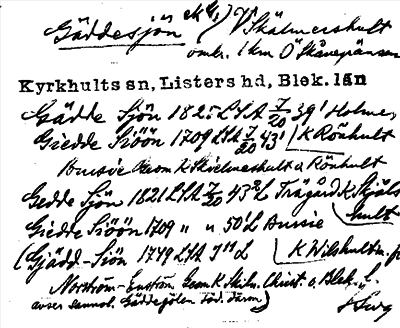 Gäddesjön V Skälmershult
omkr. 1 km Ö Skånegränsen
Kyrkhults sn, Listers hd, Blek. län
Gädde Sjön 1825 LSA 7/20 39' Holmen
Giedde Siöön 1709 LSA 7/20 43' K Rönhult
K Skielmeshult o Rönhult
Gedde Sjön 1821 LSA 7/20 43 L Trägård K Skjäls
hult
Giedde Siöön 1709 " " 50' L
(Gjädd-Siön 1749 LSA L K Wilshultn.
Norström - Enström K Skiln. Christ. o. Blek. L.
avser sannol. Gäddegölen söd. därom)